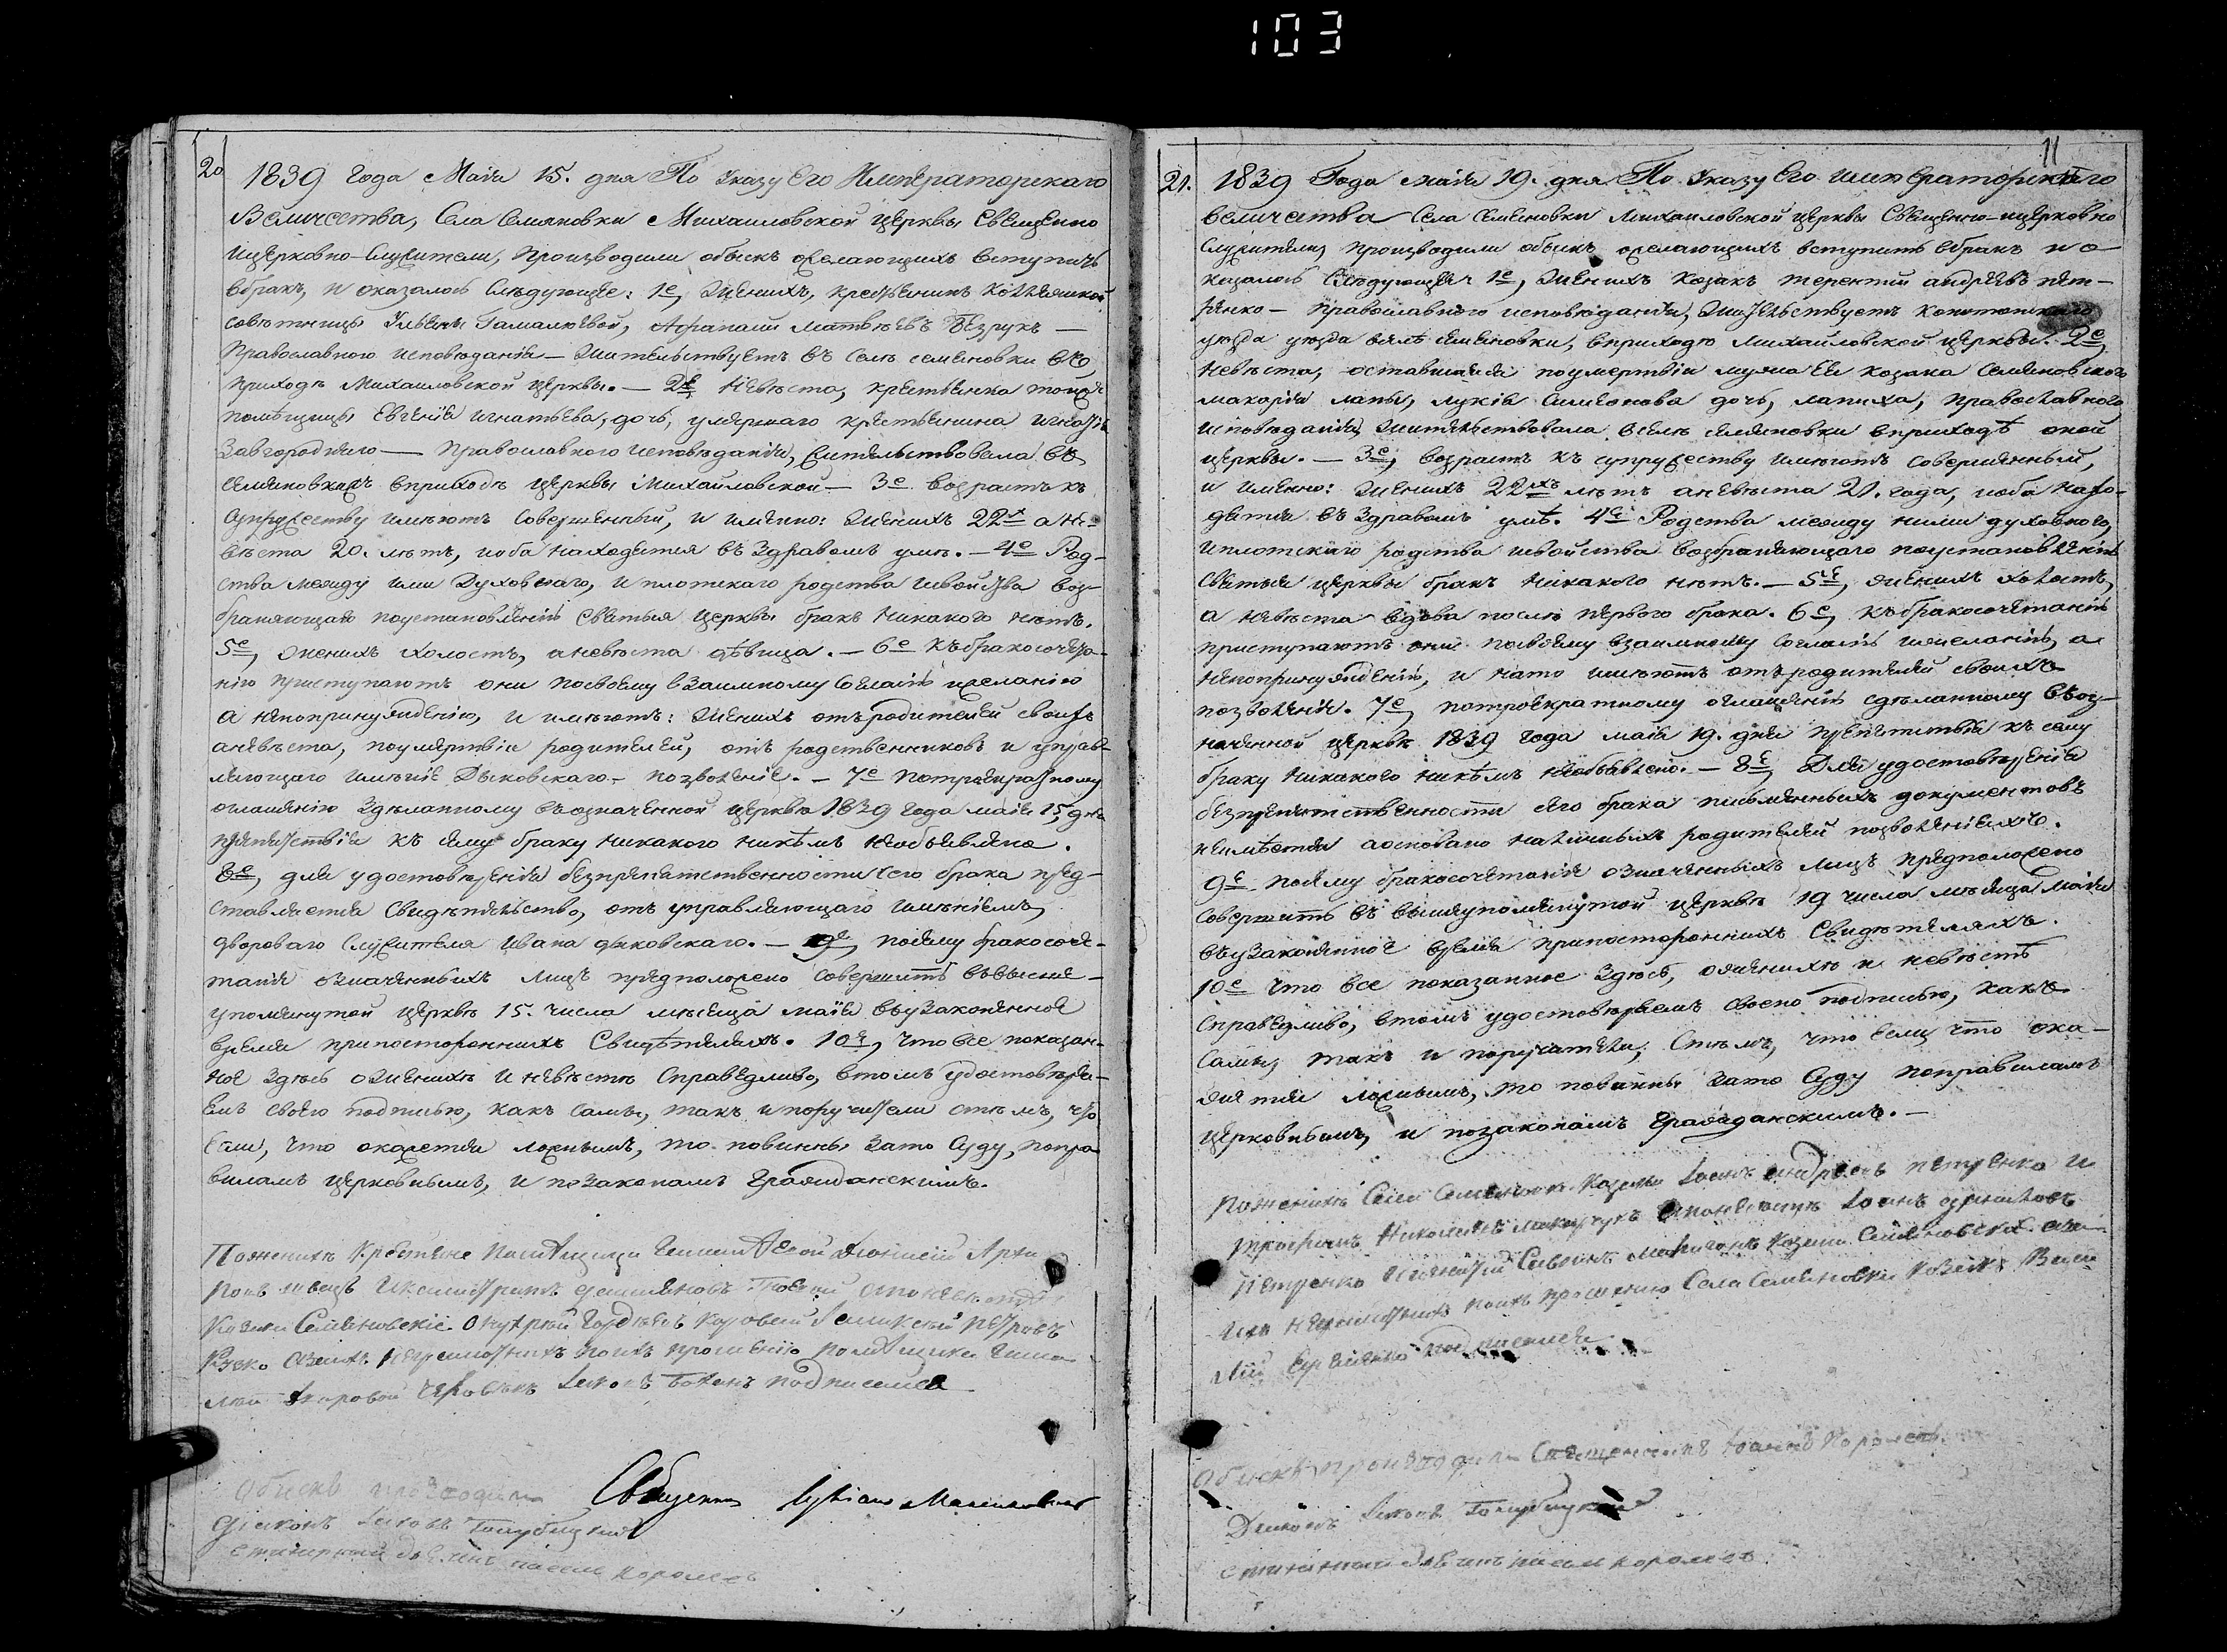 103
20
1839 года Маія 15. дня По Указу Его Императорскаго
Величества, Села Семяновки Михаиловской церквы Священно
ицерковно-Служители, Производили обыскъ желающихъ вступить
вбракъ, и оказалось Слѣдующее: 1е, Женихъ, крестьенинъ
совѣтницы Ульяны Гамалюевой, Матвѣевъ Безрукъ —
Православного исповѣданія — Жительствуетъ въ Селѣ семеновки въ
приходѣ Михаиловской церквы. — 2е Невѣста, крестьенка тоиже
помѣщицы Евгенія игнатьева, дочь, умершаго крестьенина
Завгороднего — Православного исповѣданія, Жительствовала въ
Семеновкахъ вприходѣ церквы Михаиловской — 3е возрастъ къ
Супружеству имѣютъ Совершенный, и имянно: Женихъ 22х а не-
вѣста 20. лѣтъ, иоба находятся въ Здравомъ умѣ. — 4е Род-
ства между ими Духовнаго, и плотскаго родства исвойства воз-
браняющаго поустановленію Святыя церквы бракъ Никакого нѣтъ.
5е, Женихъ Холостъ, аневѣста дѣвица. — 6е Къбракосочета-
нію приступаютъ они посвоему взаимному Согласію ижеланію
а непопринужденію, и имѣютъ: Женихъ отъродителей своихъ
аневѣста, поумертвіи родителей, отъ родственниковъ и управ-
ляющаго имѣніе Дыковскаго — позволеніе. — 7е Потроекратному
оглашенію Здѣланному въозначенной церквѣ 1839 года маія 15, дня
препятствія къ сему браку никакого никѣмъ необъявлено.
8е, для удостовѣренія безпрепятственности сего брака пред-
ставляется Свидѣтельство, отъ управляющаго имѣніемъ,
двороваго Служителя Ивана дыковскаго. — 9е, посему бракосоче-
таніе означенныхъ лицъ предположено совершить ввыше-
упомянутой церквѣ 15. числа мѣсеца маія въузаконенное
время припостороннихъ Свидѣтеляхъ. 10е, Что все показан-
ное Здѣсь оженихѣ и невѣстѣ Справедливо, втомъ удостовѣряе-
емъ своею подписью, какъ Сами, такъ ипоручители стѣмъ, что
Если, что окажется ложнымъ, то повинны Зато Суду, попра-
виламъ церковнымъ, и позаконамъ гражданскимъ.
Поженихѣ Крестяне
Козаки Семеновскіе
подписался
Обискъ Священникъ
діяконъ Іаковъ Голубицкій
11
21. 1839 Года маія 19. дня По Указу Его императорскаго
величества Села Семеновки Михаиловской церквы Священно-ицерковно
Служители, производили обыскъ желающихъ вступить вбракъ и о-
казалось Слѣдующее 1е, Женихъ Козакъ терентій андреевъ пет-
ренко — Православного исповѣданія, Жительствуетъ Конотопского
уезда уезда селѣ семеновки, вприходѣ михаиловской церквы. 2е
Невѣста, оставшаяся поумертвіи мужа ея козака Семеновского
макарія лапы, лукія Симеонова дочь, лапиха, православного
исповѣданія, Жительствовала вселѣ семяновки вприходѣ оной
церквы. — 3е, возрастъ къ супружеству имѣютъ совершенный,
и имянно: Женихъ 22хъ лѣтъ аневѣста 21. года, иоба нахо-
дятся въ Здравомъ умѣ. 4е Родства между ними духовного,
иплотскаго родства исвойства возбраняющаго поустановленію
святыя церквы бракъ никакого нѣтъ. — 5е, женихъ холостъ,
а невѣста вдова послѣ первого брака. 6е, Къбракосочетанію
приступаютъ они посвоему взаимному Согласію ижеланію, а
непопринужденію, и нато имѣютъ отъродителей своихъ
позволеніе. 7е, потроекратному оглашенію сдѣланному въоз-
наченной церквѣ 1839 года маія 19. дня препятствія къ сему
браку никакого никѣмъ необъявлено. — 8е, Для удостовѣренія
безпрепятственности сего брака писменныхъ документовъ
неимѣется аосновано наличныхъ родителей позволеніемъ.
9е посему бракосочетаніе означенныхъ лицъ предположено
Совершить въ вышеупомянутой церквѣ 19 числа мѣсяца маія
въузаконенное время припостороннихъ Свидѣтеляхъ.
10е Что все показанное Здѣсь, оженихѣ и невѣстѣ
Справедливо, втомъ удостовѣряемъ своею подписью, какъ
Сами, такъ и поручатели, Стѣмъ, что если что ока-
жется ложнымъ, то повинны Зато Суду поправиламъ
церковнымъ, и позаконамъ гражданскимъ. —
Поженихѣ Села Козаки андреевъ петренко и
Петренко
прошенію Села Семеновки козакъ
подписался
Обискъ производили Священникъ Іоаннъ Королевъ
Діяконъ Іаковъ Голубицкій